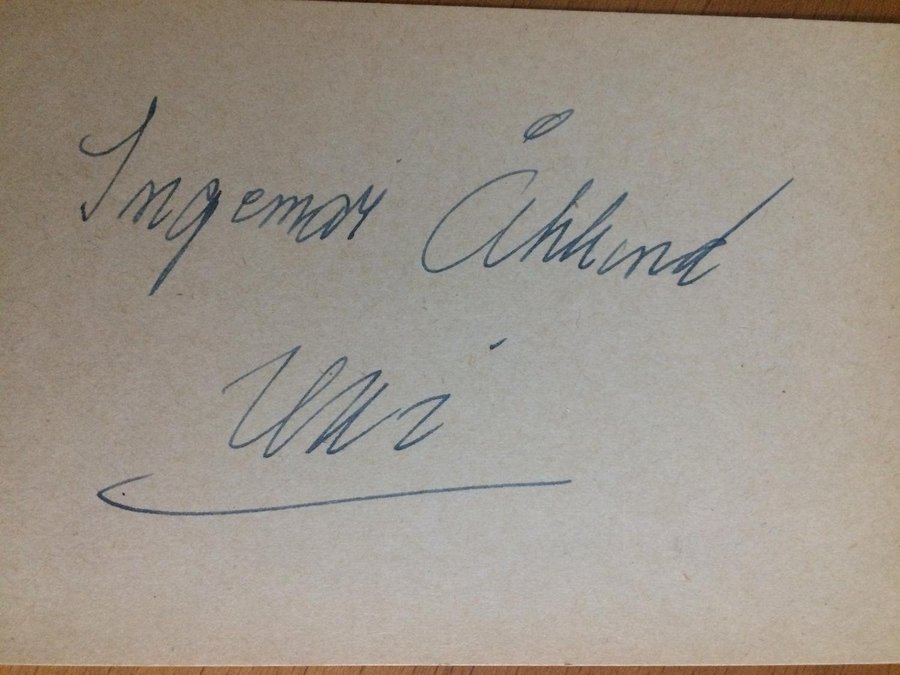 Ingemar Åhlund
Uki